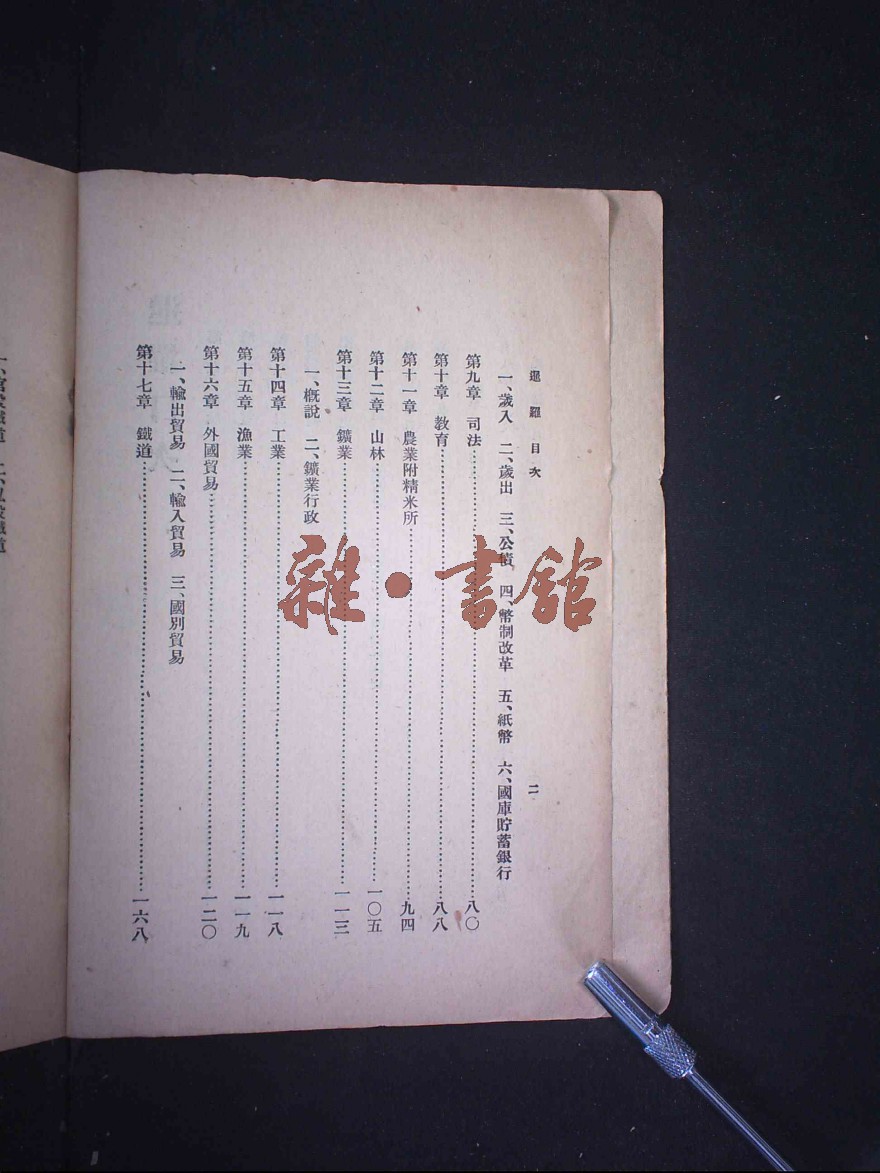 暹羅目次
二
一、歲入　二、歲出　三、公債　四、幣制改革　五、紙幣　六、國庫貯蓄銀行
第九章　司法……八〇
第十章　教育……八八
第十一章　農業附精米所……九四
第十二章　山林……一〇五
第十三章　鑛業……一一三
一、槪說　二、鑛業行政
第十四章　工業……一一八
第十五章　漁業……一一九
第十六章　外國貿易……一二〇
一、輸出貿易　二、輸入貿易　三、國別貿易
第十七章　鐵道……一六八
雜·書館